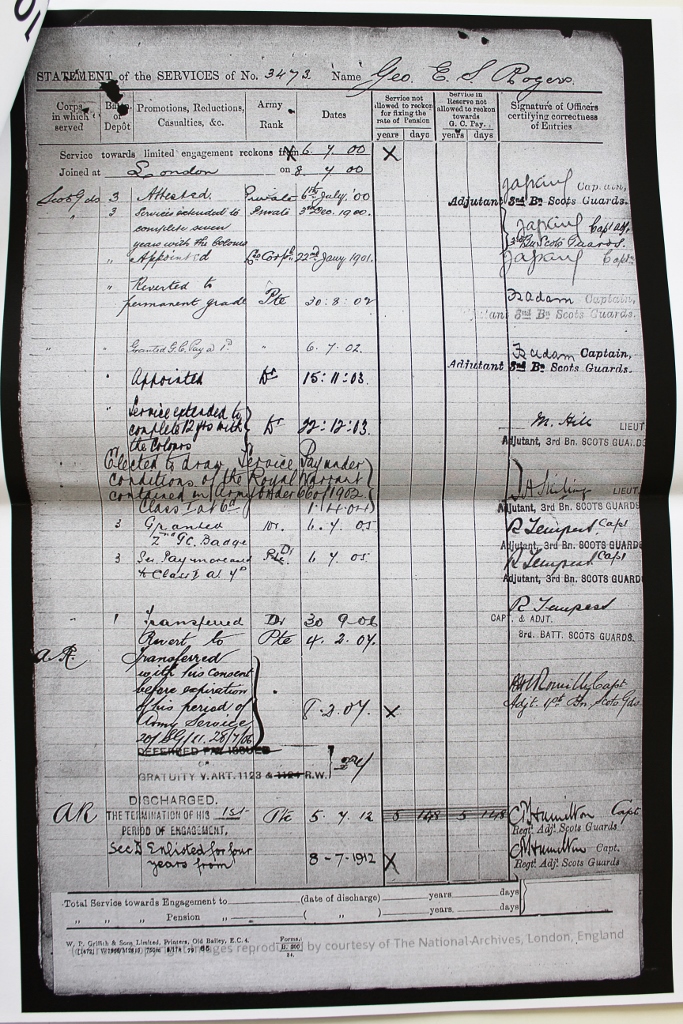 STATEMENT of the SERVICES of No. 3473 Name Geo. E. S. Rogers
Corps in which served
Bn. or Depôt
Promotions, Reductions, Casualties, &c.
Army Rank
Dates
Service not allowed to reckon for fixing the rate of Pension
years days
Service in Reserve not allowed to reckon towards G. C. Pay.
years days
Signature of Officers certifying correctness of Entries
Service towards limited engagement reckons from 6. 7. 00
Joined at London on 8. 7. 00
Scots Gds 3 Attested Private 6th July '00 Captain,
Adjutant 3rd Bn Scots Guards.
" 3 Services extended to Private 3rd Dec. 1900.
complete seven
years with the Colours
3rd Bn Scots Guards.
" Appointed 22nd Jany 1901. Captn
" Reverted to
permanent grade Pte 30. 8. 02 F. Adam Captain,
3rd Bn Scots Guards.
" " Granted G.C. Pay a 1d " 6. 7. 02. F. Adam Captain,
Adjutant 3rd Bn Scots Guards.
" " Appointed Dr 15: 11: 03.
" " Service extended to
complete 12 yrs with Dr 22: 12: 03. M. Hill LIEUT
the Colours Adjutant, 3rd Bn. SCOTS GUARDS
Elected to draw Service Pay under
conditions of the Royal Warrant
contained in Army Order 66 of 1902 LIEUT.
Class I at 6d 1. 4. 04 Adjutant, 3rd Bn. SCOTS GUARDS
3 Granted Dr. 6. 7. 05 R Tempest Capt
2nd G.C. Badge Adjutant, 3rd Bn. SCOTS GUARDS
3 Ser. Pay increased Dr 6. 7. 05 R Tempest Capt
to Class I at 7d Adjutant, 3rd Bn. SCOTS GUARDS
" 1 Transferred Dr 30 9. 06 R Tempest
CAPT. & ADJT.
Revert to Pte 4. 2. 07. 3rd. BATT. SCOTS GUARDS.
A.R. Transferred
with his consent
before expiration
of his period of " 8. 2. 07. Capt
Army Service Adjt. 1st Bn. Scots Gds
DEFERRED PAY ISSUED
OR
GRATUITY V. ART. 1123 & 1124 R.W.
DISCHARGED.
AR THE TERMINATION OF HIS 1st Pte 5. 7. 12 5 148 5 148 C Hamilton Capt
PERIOD OF ENGAGEMENT, Regtl. Adj. Scots Guards
Sec D Enlisted for four 8-7-1912 C Hamilton Capt.
years from Regtl. Adj. Scots Guards
Total Service towards Engagement to (date of discharge) years days
" " " Pension ( " ) years, days
W. P. Griffith & Sons Limited, Printers, Old Bailey, E.C. 4.
Forms
images reproduced by courtesy of The National Archives, London, England